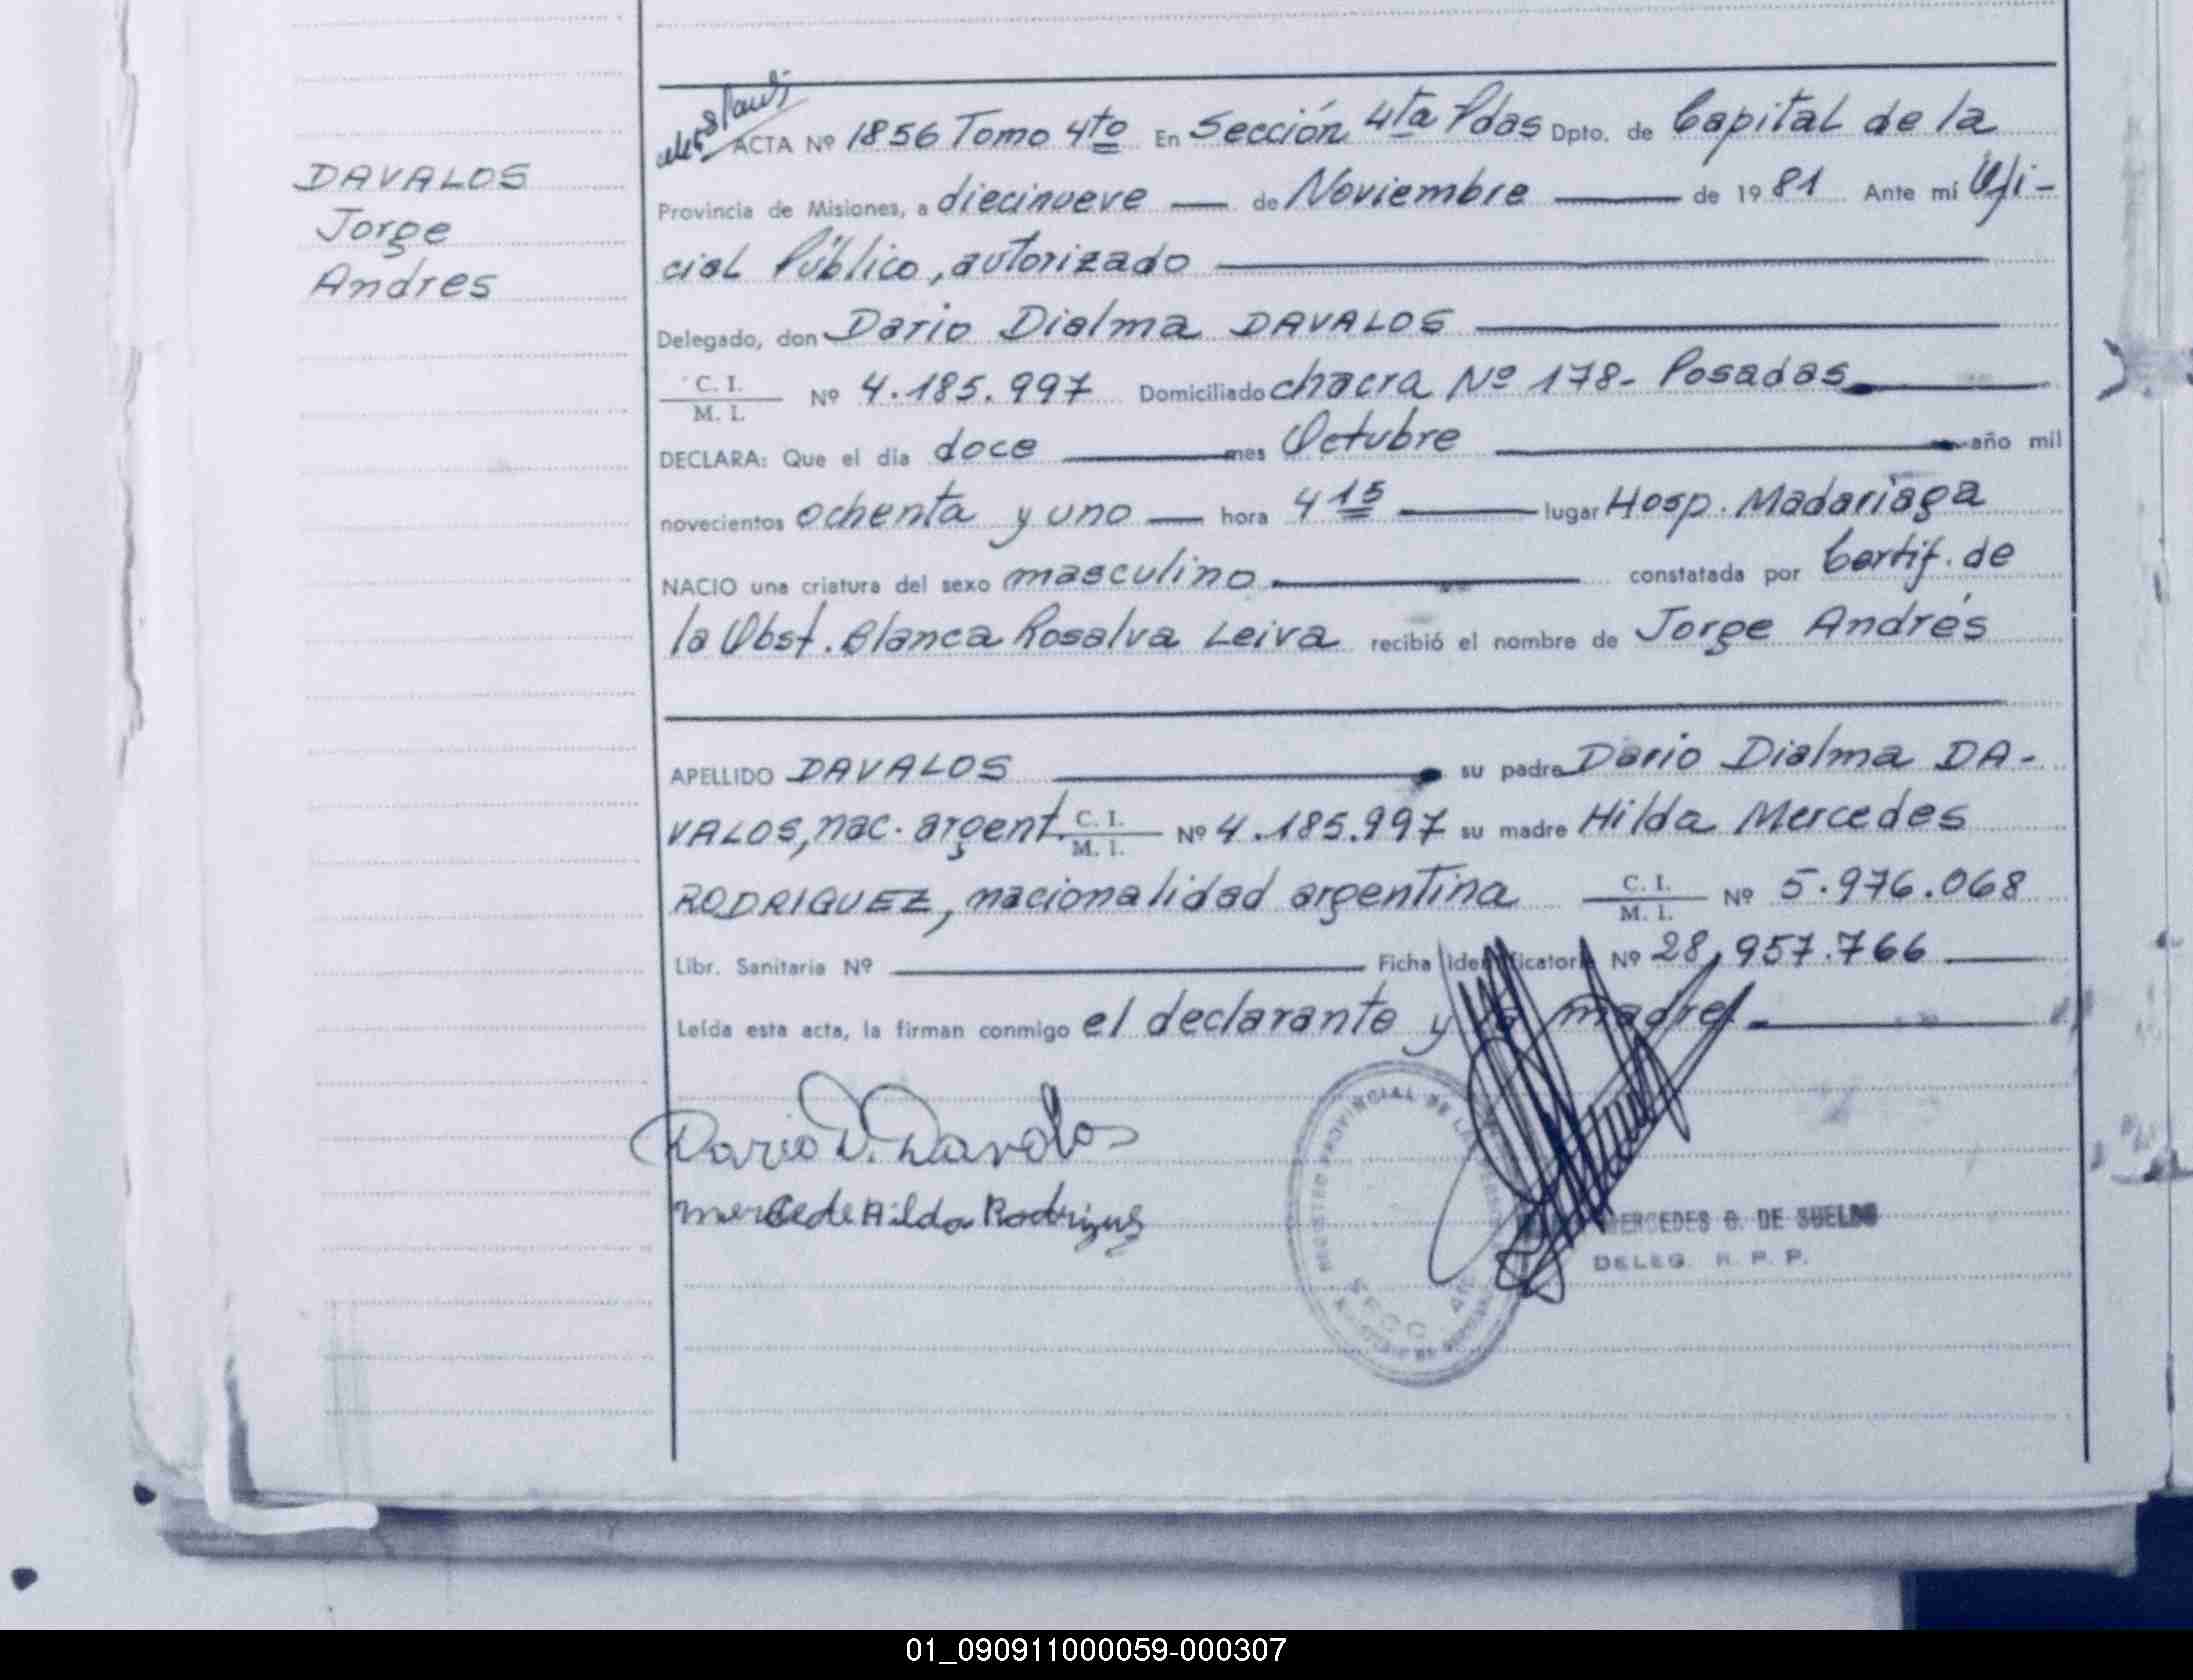 ACTA Nº 1856 Tomo 4to En Sección 4ta Pdas Dpto. de Capital de la
DAVALOS
Jorge
Andres
Provincia de Misiones, a diecinueve de Noviembre de 1981 Ante mí Ofi-
cial Público, autorizado
Delegado, don Dario Dialma DAVALOS
C. I.
M. I.
Nº 4.185.997 Domiciliado chacra Nº 178- Posadas
DECLARA: Que el día doce mes Octubre año mil
novecientos ochenta y uno hora 4 15 lugar Hosp. Madariaga
NACIO una criatura del sexo masculino constatada por Certif. de
la Obst. Blanca Rosalva Leiva recibió el nombre de Jorge Andrés
APELLIDO DAVALOS su padre Dario Dialma DA-
VALOS, nac. argent. C. I. M. I. Nº 4.185.997 su madre Hilda Mercedes
RODRIGUEZ, nacionalidad argentina C. I. M. I. Nº 5.976.068
Libr. Sanitaria Nº Ficha Identificatoria Nº 28.957.766
Leída esta acta, la firman conmigo el declarante y la madre.-
Dario D. Davalos
Mercede Hilda Rodriguez
REGISTRO PROVINCIAL DE LAS
MERCEDES G. DE SUELDO
DELEG. R. P. P.
01_090911000059-000307